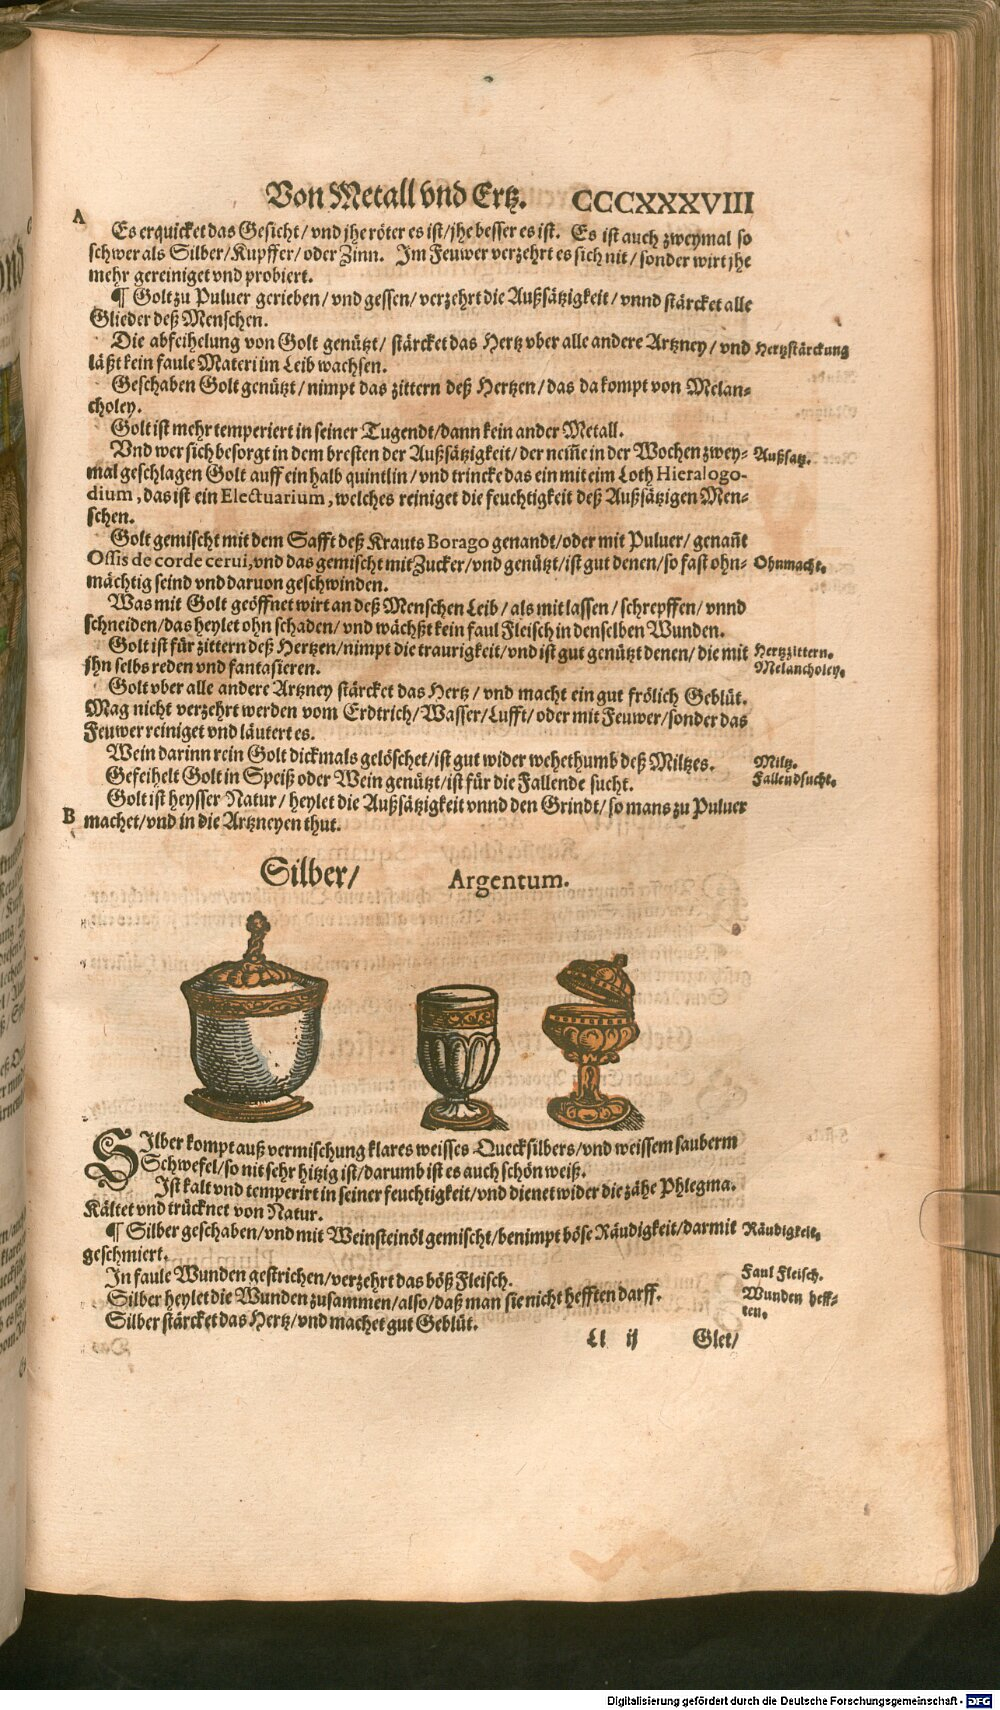 Von Metall vnd Ertz. CCCXXXVIII
A
Es erquicket das Gesicht / vnd jhe röter es ist / jhe besser es ist. Es ist auch zweymal so
schwer als Silber / Kupffer / oder Zinn. Im Feuwer verzehrt es sich nit / sonder wirt jhe
mehr gereiniget vnd probiert.
¶ Golt zu Puluer gerieben / vnd gessen / verzehrt die Außsätzigkeit / vnnd stärcket alle
Glieder deß Menschen.
Die abfeihelung von Golt genützt / stärcket das Hertz vber alle andere Artzney / vnd Hertzstärckung
läßt kein faule Materi im Leib wachsen.
Geschaben Golt genützt / nimpt das zittern deß Hertzen / das da kompt von Melan=
choley.
Golt ist mehr temperiert in seiner Tugendt / dann kein ander Metall.
Vnd wer sich besorgt in dem bresten der Außsätzigkeit / der nem̃e in der Wochen zwey= Außsatz.
mal geschlagen Golt auff ein halb quintlin / vnd trincke das ein mit eim Loth Hieralogo-
dium, das ist ein Electuarium, welches reiniget die feuchtigkeit deß Außsätzigen Men=
schen.
Golt gemischt mit dem Safft deß Krauts Borago genandt / oder mit Puluer / genañt
Ossis de corde cerui, vnd das gemischt mit Zucker / vnd genützt / ist gut denen / so fast ohn= Ohnmacht.
mächtig seind vnd daruon geschwinden.
Was mit Golt geöffnet wirt an deß Menschen Leib / als mit lassen / schrepffen / vnnd
schneiden / das heylet ohn schaden / vnd wächßt kein faul Fleisch in denselben Wunden.
Golt ist für zittern deß Hertzen / nimpt die traurigkeit / vnd ist gut genützt denen / die mit Hertzzittern.
jhn selbs reden vnd fantasieren. Melancholey.
Golt vber alle andere Artzney stärcket das Hertz / vnd macht ein gut frölich Geblüt.
Mag nicht verzehrt werden vom Erdtrich / Wasser / Lufft / oder mit Feuwer / sonder das
Feuwer reiniget vnd läutert es.
Wein darinn rein Golt dickmals gelöschet / ist gut wider wehethumb deß Miltzes. Miltz.
Gefeihelt Golt in Speiß oder Wein genützt / ist für die Fallende sucht. Fallendsucht.
Golt ist heysser Natur / heylet die Außsätzigkeit vnnd den Grindt / so mans zu Puluer
B machet / vnd in die Artzneyen thut.
Silber / Argentum.
Silber kompt auß vermischung klares weisses Quecksilbers / vnd weissem sauberm
Schwefel / so nit sehr hitzig ist / darumb ist es auch schön weiß.
Ist kalt vnd temperirt in seiner feuchtigkeit / vnd dienet wider die zähe Phlegma.
Kältet vnd trücknet von Natur.
¶ Silber geschaben / vnd mit Weinsteinöl gemischt / benimpt böse Räudigkeit / darmit Räudigkeit.
geschmiert.
In faule Wunden gestrichen / verzehrt das böß Fleisch. Faul Fleisch.
Silber heylet die Wunden zusammen / also / daß man sie nicht hefften darff. Wunden heff=
ten.
Silber stärcket das Hertz / vnd machet gut Geblüt.
Ll ij Glet /
Digitalisierung gefördert durch die Deutsche Forschungsgemeinschaft - DFG